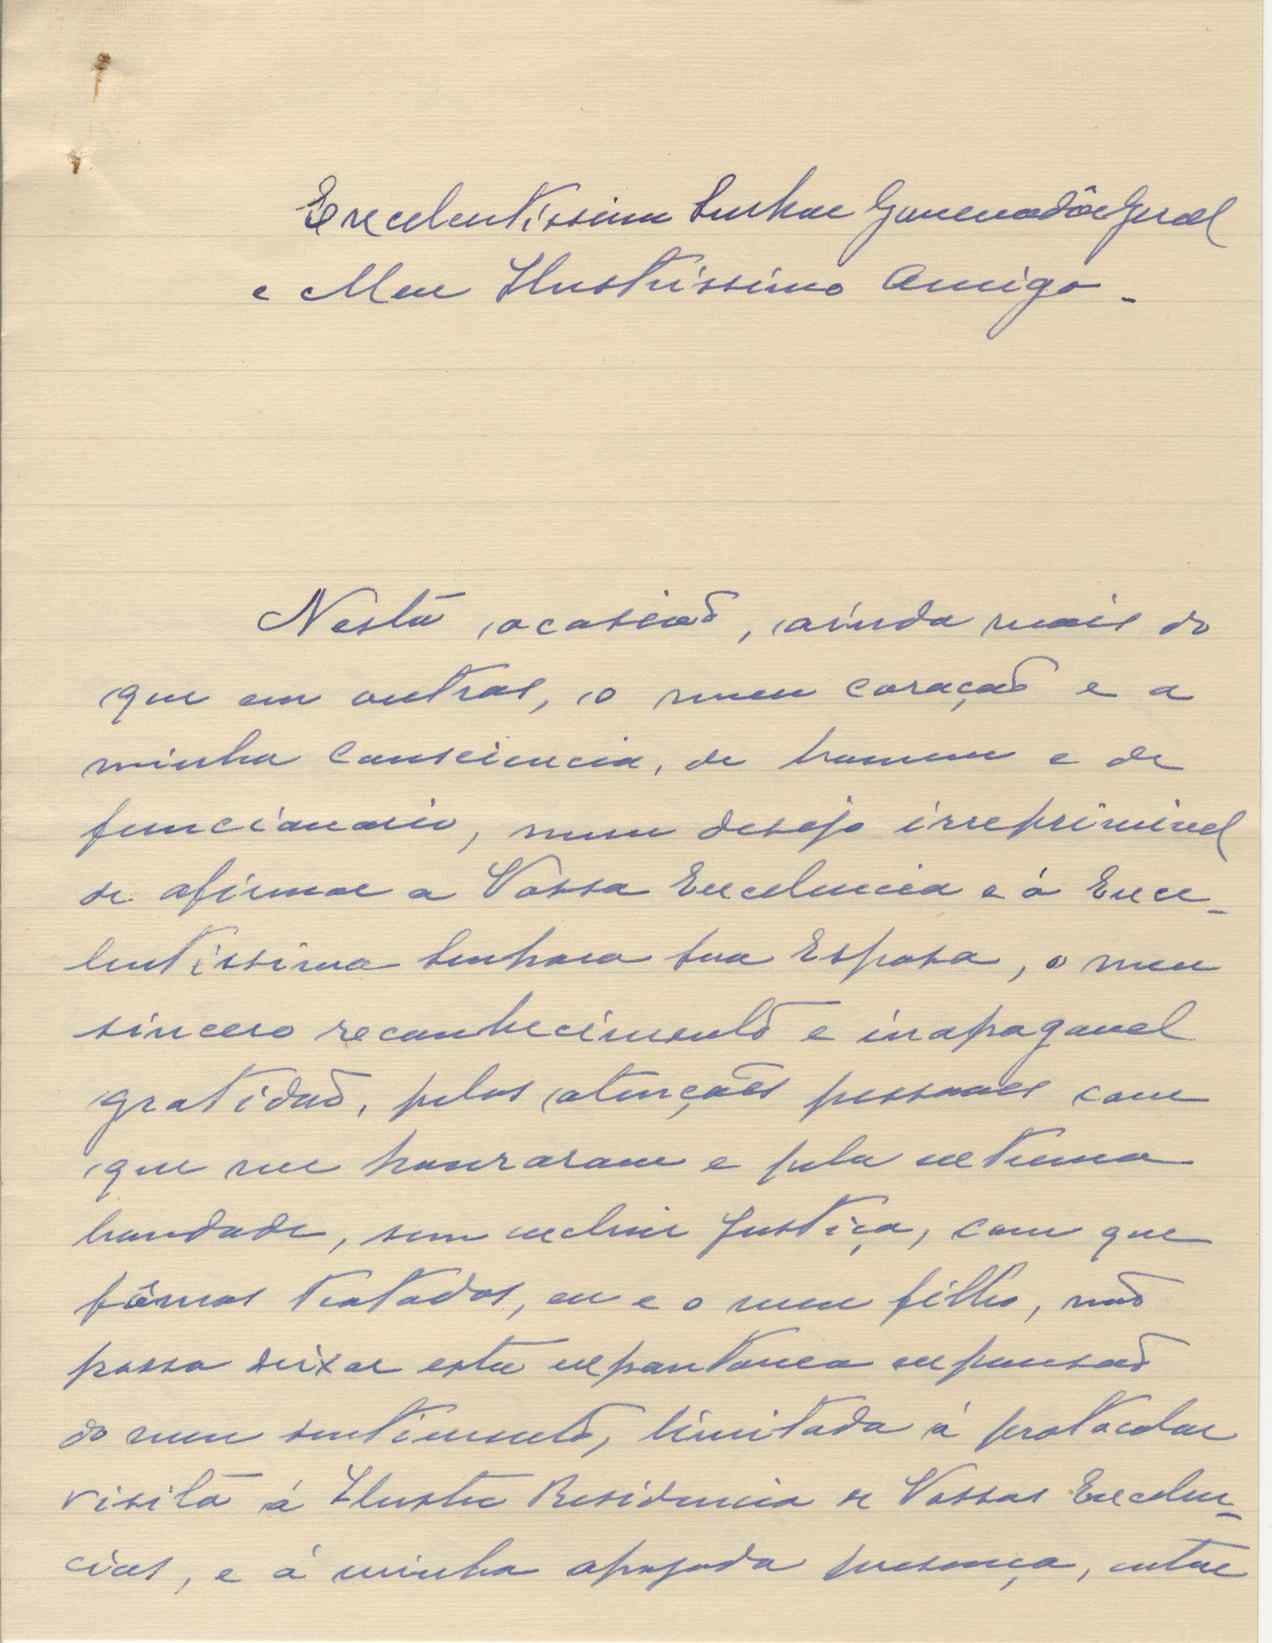 Excelentissimo Senhor Governadôr Geral
e Meu Ilustrissimo Amigo -
Nesta ocasião, ainda mais do
que em outras, o meu coração e a
minha consciencia, de homem e de
funcionario, num desejo irreprimivel
de afirmar a Vossa Excelencia e á Exce-
lentissima Senhora Sua Esposa, o meu
sincero reconhecimento e inapagavel
gratidão, pelas atenções pessoaes com
que me honraram e pela extrema
bondade, sem excluir Justiça, com que
fômos tratados, eu e o meu filho, não
posso deixar esta expontanea expansão
do meu sentimento, limitada á protocolar
visita á Ilustre Residencia de Vossas Excelen-
cias, e á minha apagada presença, entre